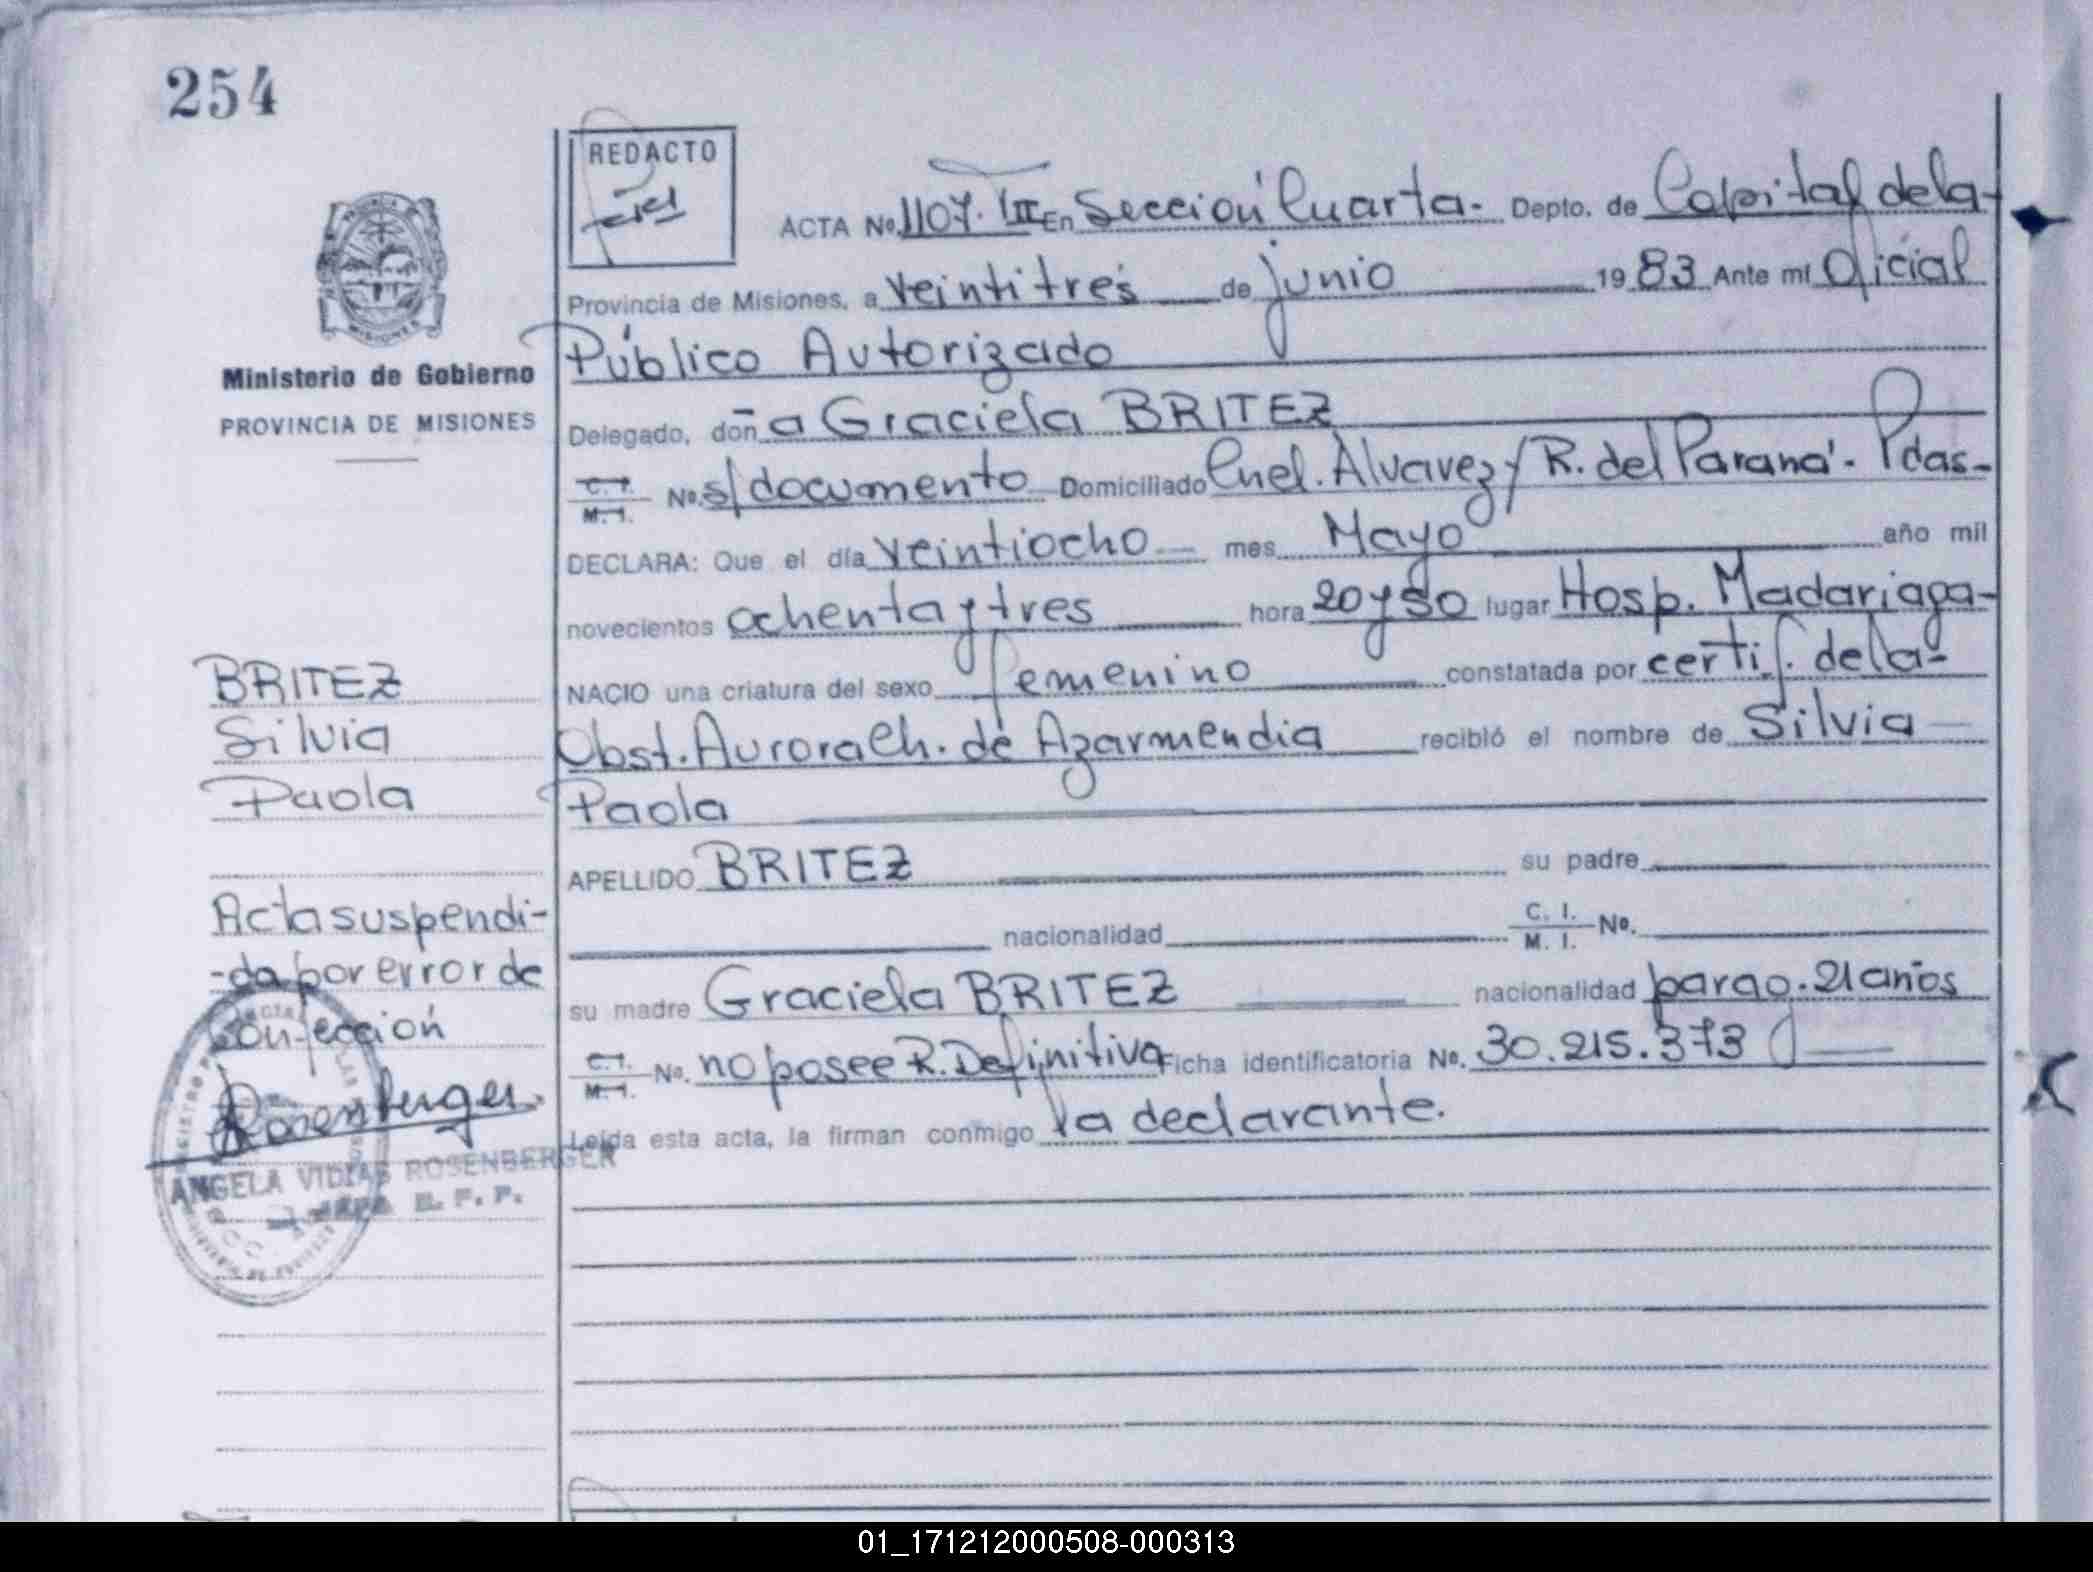 254
REDACTO
ACTA No. 1107. III En Sección Cuarta. Depto. de Capital de la
Provincia de Misiones, a veintitrés de junio 1983 Ante mí Oficial
Público Autorizado
Ministerio de Gobierno
PROVINCIA DE MISIONES
Delegado, doña Graciela BRITEZ
C. I.
M. I. No. s/documento Domiciliado Cnel. Alvarez y R. del Paraná. Pdas
DECLARA: Que el día veintiocho mes Mayo año mil
novecientos ochenta y tres hora 20 y 50 lugar Hosp. Madariaga
NACIO una criatura del sexo femenino constatada por certif. de la
Obst. Aurora Ch. de Azarmendia recibió el nombre de Silvia
Paola
APELLIDO BRITEZ su padre
nacionalidad C. I.
M. I. No.
su madre Graciela BRITEZ nacionalidad parag. 21 años
C. I.
M. I. No. no posee R. Definitiva Ficha identificatoria No. 30.215.373
Leída esta acta, la firman conmigo la declarante.
BRITEZ
Silvia
Paola
Acta suspendi-
-da por error de
confección
Rosenberger
ANGELA VIDIAS ROSENBERGER
01_171212000508-000313